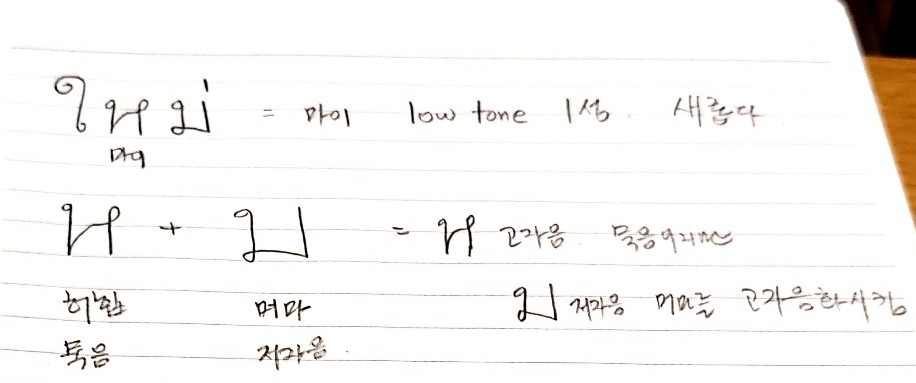 ใหม่ = 마이 low tone 1성. 새롭다
마이
ห + ม = ห 고자음. 묵음이지만
허힙 머마 ม 저자음 머마를 고자음화시킴
묵음 저자음.